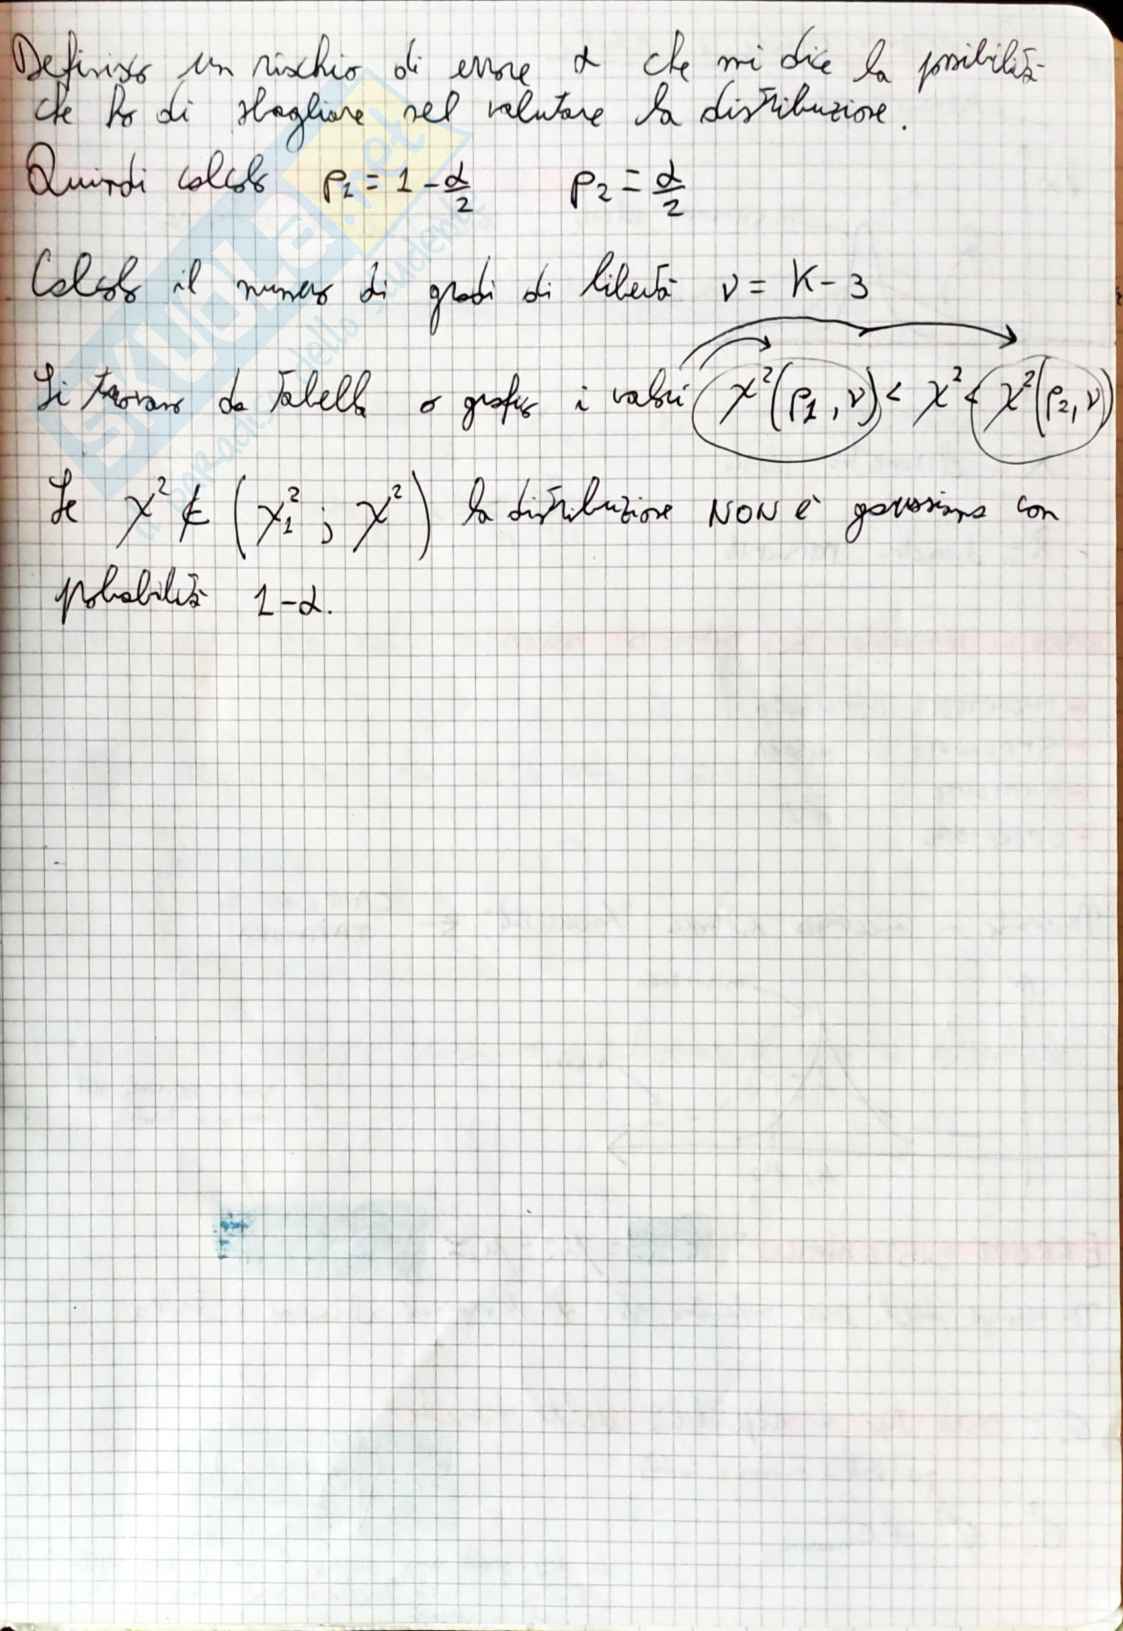 Definisco un rischio di errore α che mi dice la possibilità
che ho di sbagliare nel valutare la distribuzione.
Quindi calcolo p₁ = 1 - α/2 p₂ = α/2
Calcolo il numero di gradi di libertà ν = K - 3
Si trovano da tabella o grafico i valori χ²(p₁, ν) < χ² < χ²(p₂, ν)
Se χ² ∉ (χ₁² ; χ²) la distribuzione NON è gaussiana con
probabilità 1-α.
SKUOLA.net